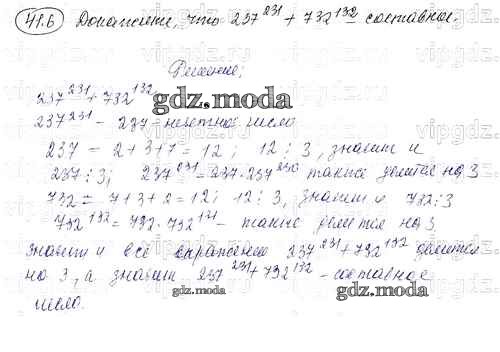 41.6 Докажите, что 237^231 + 732^132 – составное.
Решение:
237^231 + 732^132
237^231 – 237 – нечетное число
237 = 2+3+7 = 12; 12 ⋮ 3, значит и
237 ⋮ 3; 237^231 = 237·237^230 также делится на 3
732 = 7+3+2 = 12; 12 ⋮ 3, значит и 732 ⋮ 3
732^132 = 732·732^131 – также делится на 3,
значит и всё выражение 237^231 + 732^132 делится
на 3, а значит 237^231 + 732^132 – составное
число.
gdz.moda
gdz.moda
gdz.moda
gdz.moda